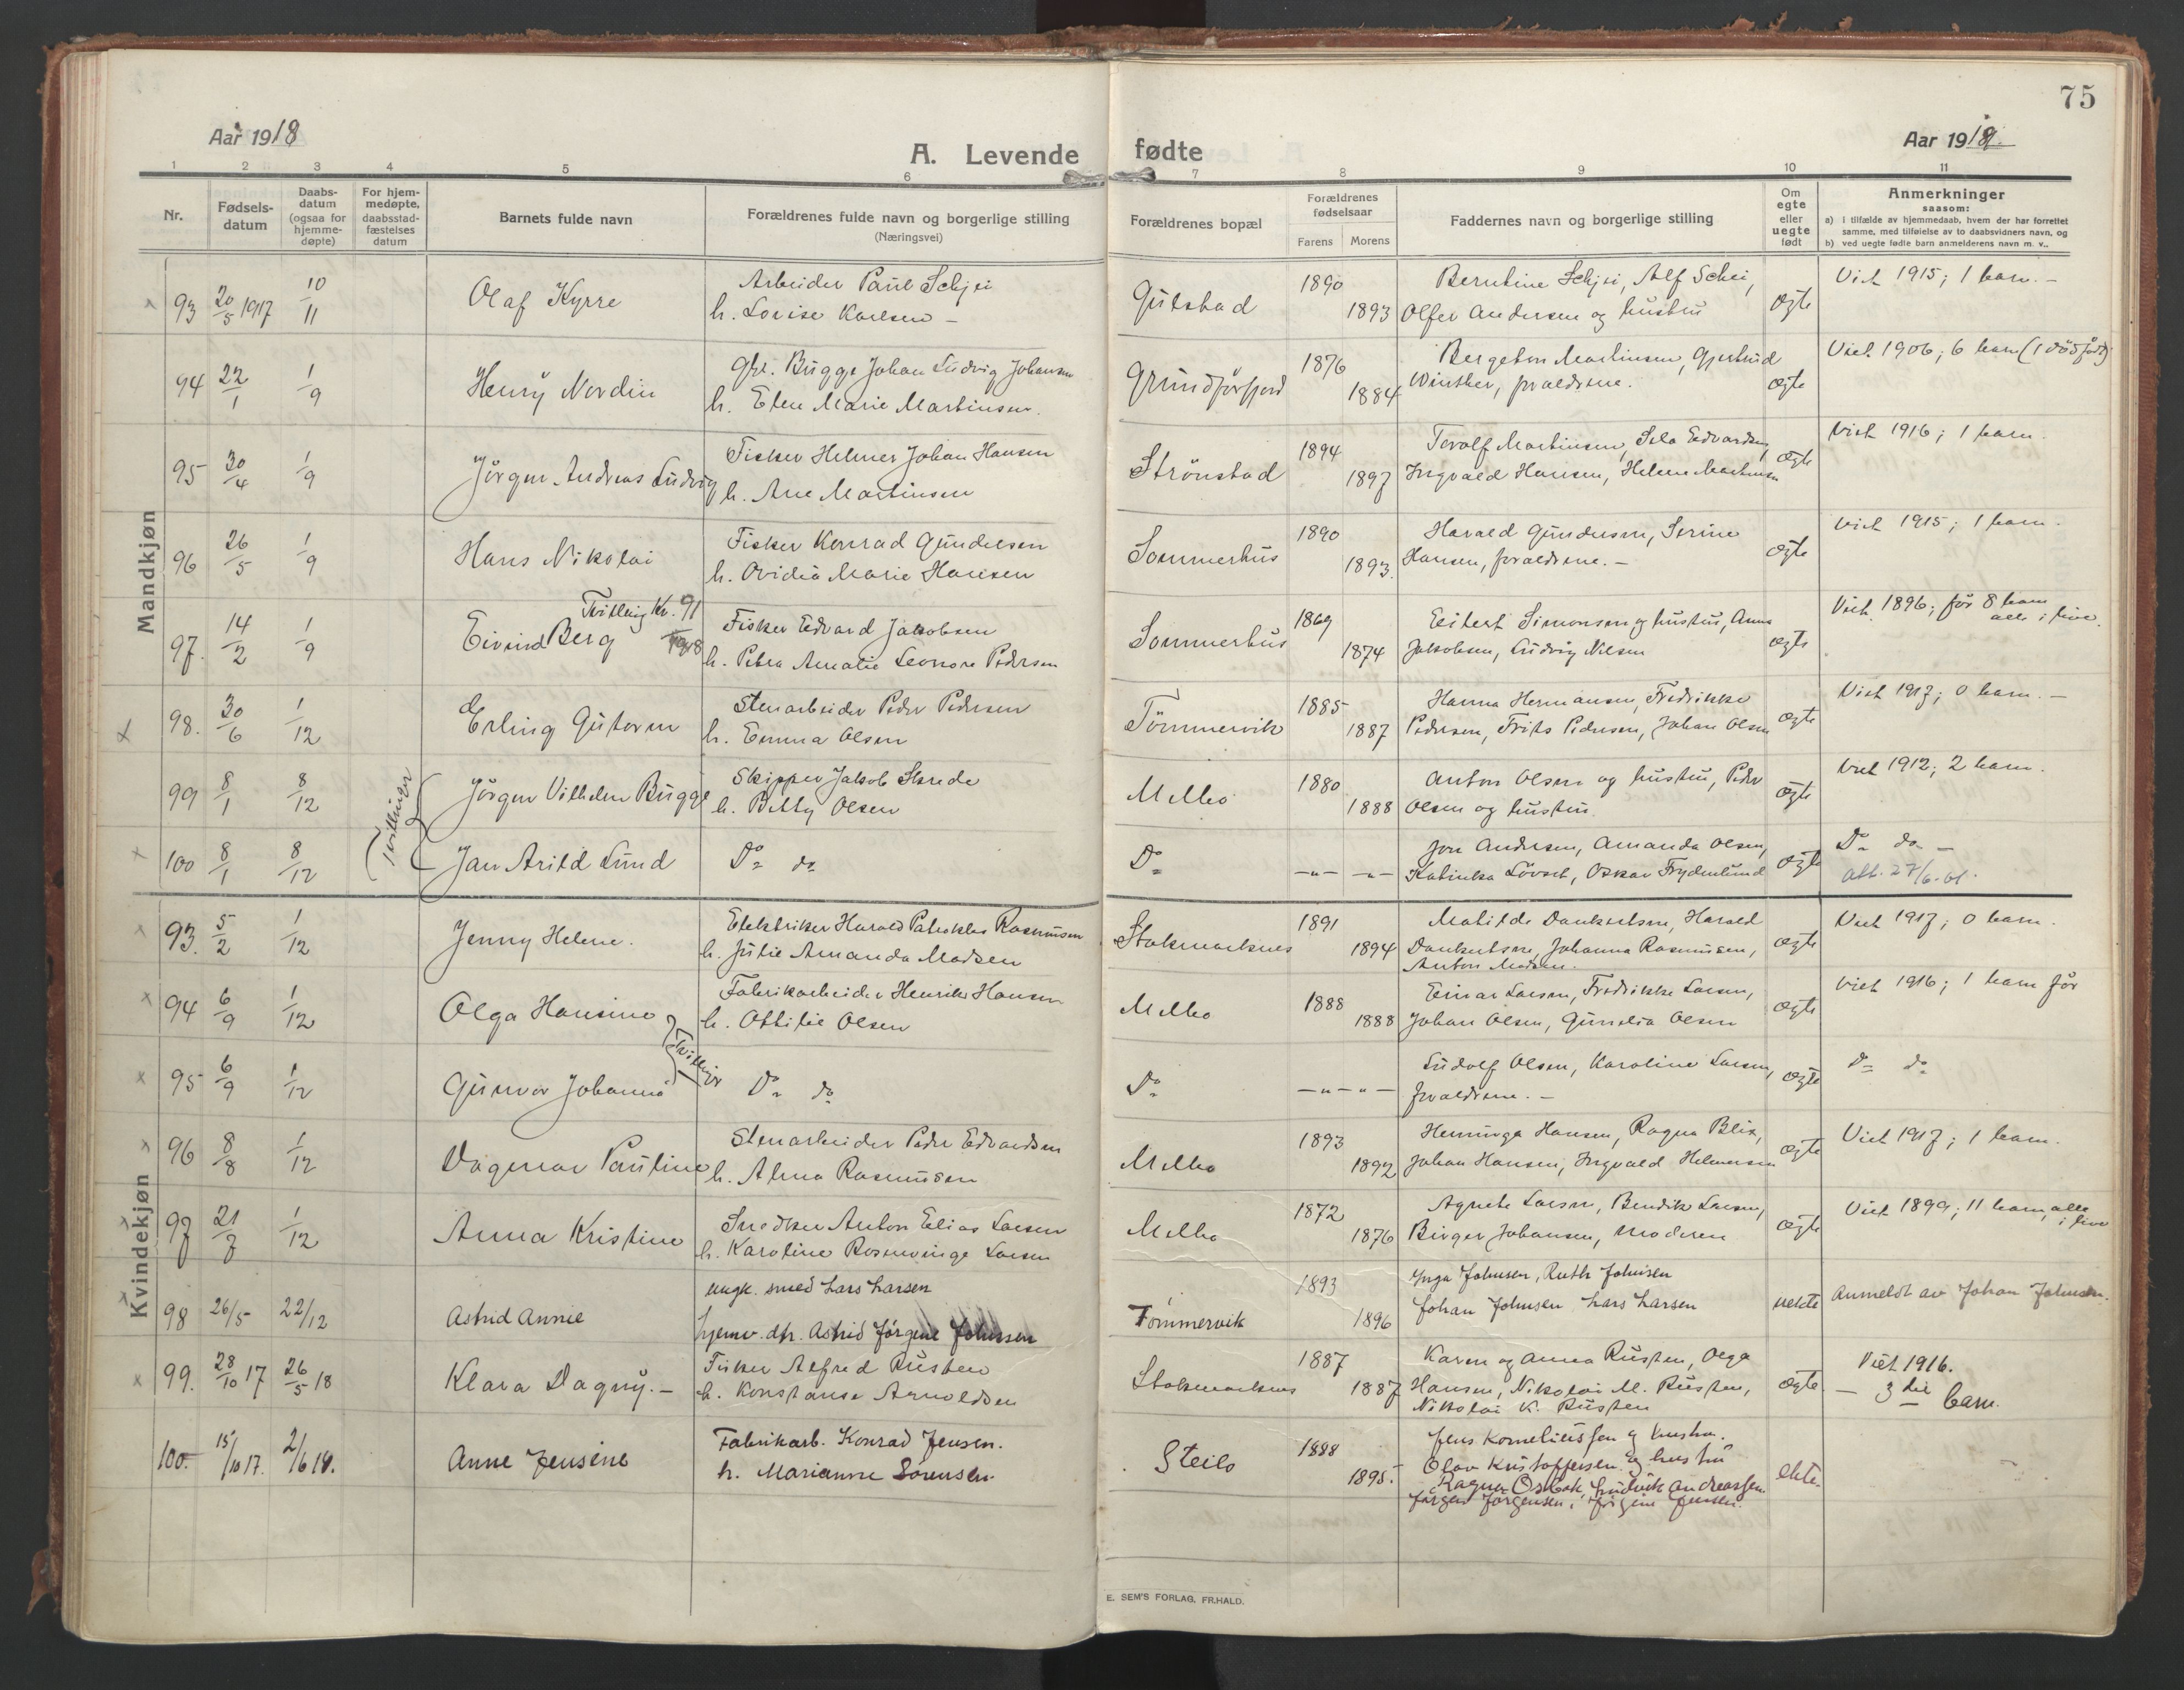 75
Aar 1918
A. Levende fødte
Aar 1918.
1 2 3 4 5 6 7 8 9 10 11
Nr.
Fødsels-
datum
Daabs-
datum
(ogsaa for
hjemme-
døpte)
For hjem-
medøpte,
daabsstad-
fæstelses
datum
Barnets fulde navn
Forældrenes fulde navn og borgerlige stilling
(Næringsvei)
Forældrenes bopæl
Forældrenes
fødselsaar
Farens Morens
Faddernes navn og borgerlige stilling
Om
egte
eller
uegte
født
Anmerkninger
saasom:
a) i tilfælde av hjemmedaab, hvem der har forrettet
samme, med tilføielse av to daabsvidners navn, og
b) ved uegte fødte barn anmelderens navn m. v..
Mandkjøn
93 20/5 1917 10/11 Olaf Kyrre Arbeider Paul Schjei Gulstad 1890 Berntine Schjei, Alf Schei, Viet 1915; 1 barn. –
h. Lovise Karlsen – 1893 Olfer Andersen og hustru ægte
94 22/1 1/9 Henry Nordin Gbr. Bugge Johan Ludvig Johansen Grundførfjord 1876 Bergeton Martinsen, Gjertrud Viet 1906; 6 barn (1 dødfødt)
h. Eline Marie Martinsen. 1884 Winther, forældrene. ægte
95 30/4 1/9 Jörgen Andreas Ludvig Fisker Helmer Johan Hansen Strönstad 1894 Torolf Martinsen, Edvardsen, ægte Viet 1916; 1 barn.
h. Ane Martinsen 1897 Ingvald Hansen, Helene Martinsen
96 26/5 1/9 Hans Nikolai Fisker Konrad Gundersen Sommerhus 1890 Harald Gundersen, Serine ægte Viet 1915; 1 barn.
h. Ovidia Marie Hansen 1893. Hansen, forældrene. –
97. 14/2 1/9 Eivind Berg Tvilling Kv. 91 1918 Fisker Edvard Jakobsen Sommerhus 1869 Eilert Simonsen og hustru, Anna ægte Viet 1896; før 8 barn
alle i live.
h. Petra Amalie Leonore Pedersen 1874 Jakobsen, Ludvig Nilsen
98. 30/6 1/12 Erling Gutorm Stenarbeider Peder Pedersen Tömmervik 1885 Hanna Hermansen, Fredrikke ægte Viet 1917; 0 barn. –
h. Emma Olsen 1887 Pedersen, Frits Pedersen, Johan Olsen
99 8/1 8/12 Tvillinger Jörgen Vilhelm Bugge Skipper Jakob Skrede Melbo 1880 Anton Olsen og hustru, Peder ægte Viet 1912; 2 barn.
h. Betty Olsen 1888 Olsen og hustru.
100 8/1 8/12 Jan Arild Lund Do do Do –"– –"– Jon Andersen, Amanda Olsen, ægte Do do –
Katinka Lövset, Oskar Frydenlund Att. 27/6-61.
Kvindekjøn
93. 5/2 1/12 Jenny Helene. Elektriker Harald Patroklus Rasmussen Stokmarknes 1891 Matilde Dankertsen, Harald ægte Viet 1917; 0 barn.
h. Julie Amanda Madsen 1894 Dankertsen, Johanna Rasmussen,
Anton Madsen.
94 6/9 1/12 Olga Hansine Fabrikarbeider Henrik Hansen Melbo 1888 Einar Larsen, Fredrikke Larsen, ægte Viet 1916; 1 barn før
h. Ottilie Olsen 1888 Johan Olsen, Gunelia Olsen
Tvillinger
95 6/9 1/12 Gunvor Johanna Do do Do –"–"– Ludolf Olsen, Karoline Larsen, ægte Do do
forældrene. –
96 8/8 1/12 Dagmar Pauline Stenarbeider Peder Edvardsen Melbo 1893 Henninga Hansen, Ragna Blix, ægte Viet 1917; 1 barn.
h. Alma Rasmussen 1892 Johan Hansen, Ingvald Helmersen
97 21/7 1/12 Anna Kristine Snedker Anton Elias Larsen Melbo 1872 Agnete Larsen, Bendik Larsen, ægte Viet 1899; 11 barn, alle
i live
h. Karoline Rosenvinge Larsen 1876 Birger Johansen, Moderen
98 26/5 22/12 Astrid Annie ungk. smed Lars Larsen Tømmervik 1893 Inga Johnsen, Ruth Johnsen uekte Anmeldt av Johan Johnsen.
hjemv. dtr. Astrid Jörgine Johnsen 1896 Johan Johnsen Lars Larsen
99. 28/10 17 26/5 18 Klara Dagny. – Fisker Alfred Rusten Stokmarknes 1887 Karen og Anna Rusten, Olga ægte Viet 1916.
h. Konstanse Arnoldsen 1887 Hansen, Nikolai M. Rusten, – 3die barn.
Nikolai K. Rusten
100. 15/10 17. 2/6 18. Anne Jensine Fabrikarb. Konrad Jensen. Steilo 1888 Jens Korneliussen og hustru. ekte.
h. Marianne Sörensen. 1895. Olav Kristoffersen og hustru
Ragna Osbak, Ludvik Andreassen
Jörgen Jörgensen, Jörgine Jensen.
E. SEM'S FORLAG, FR.HALD.